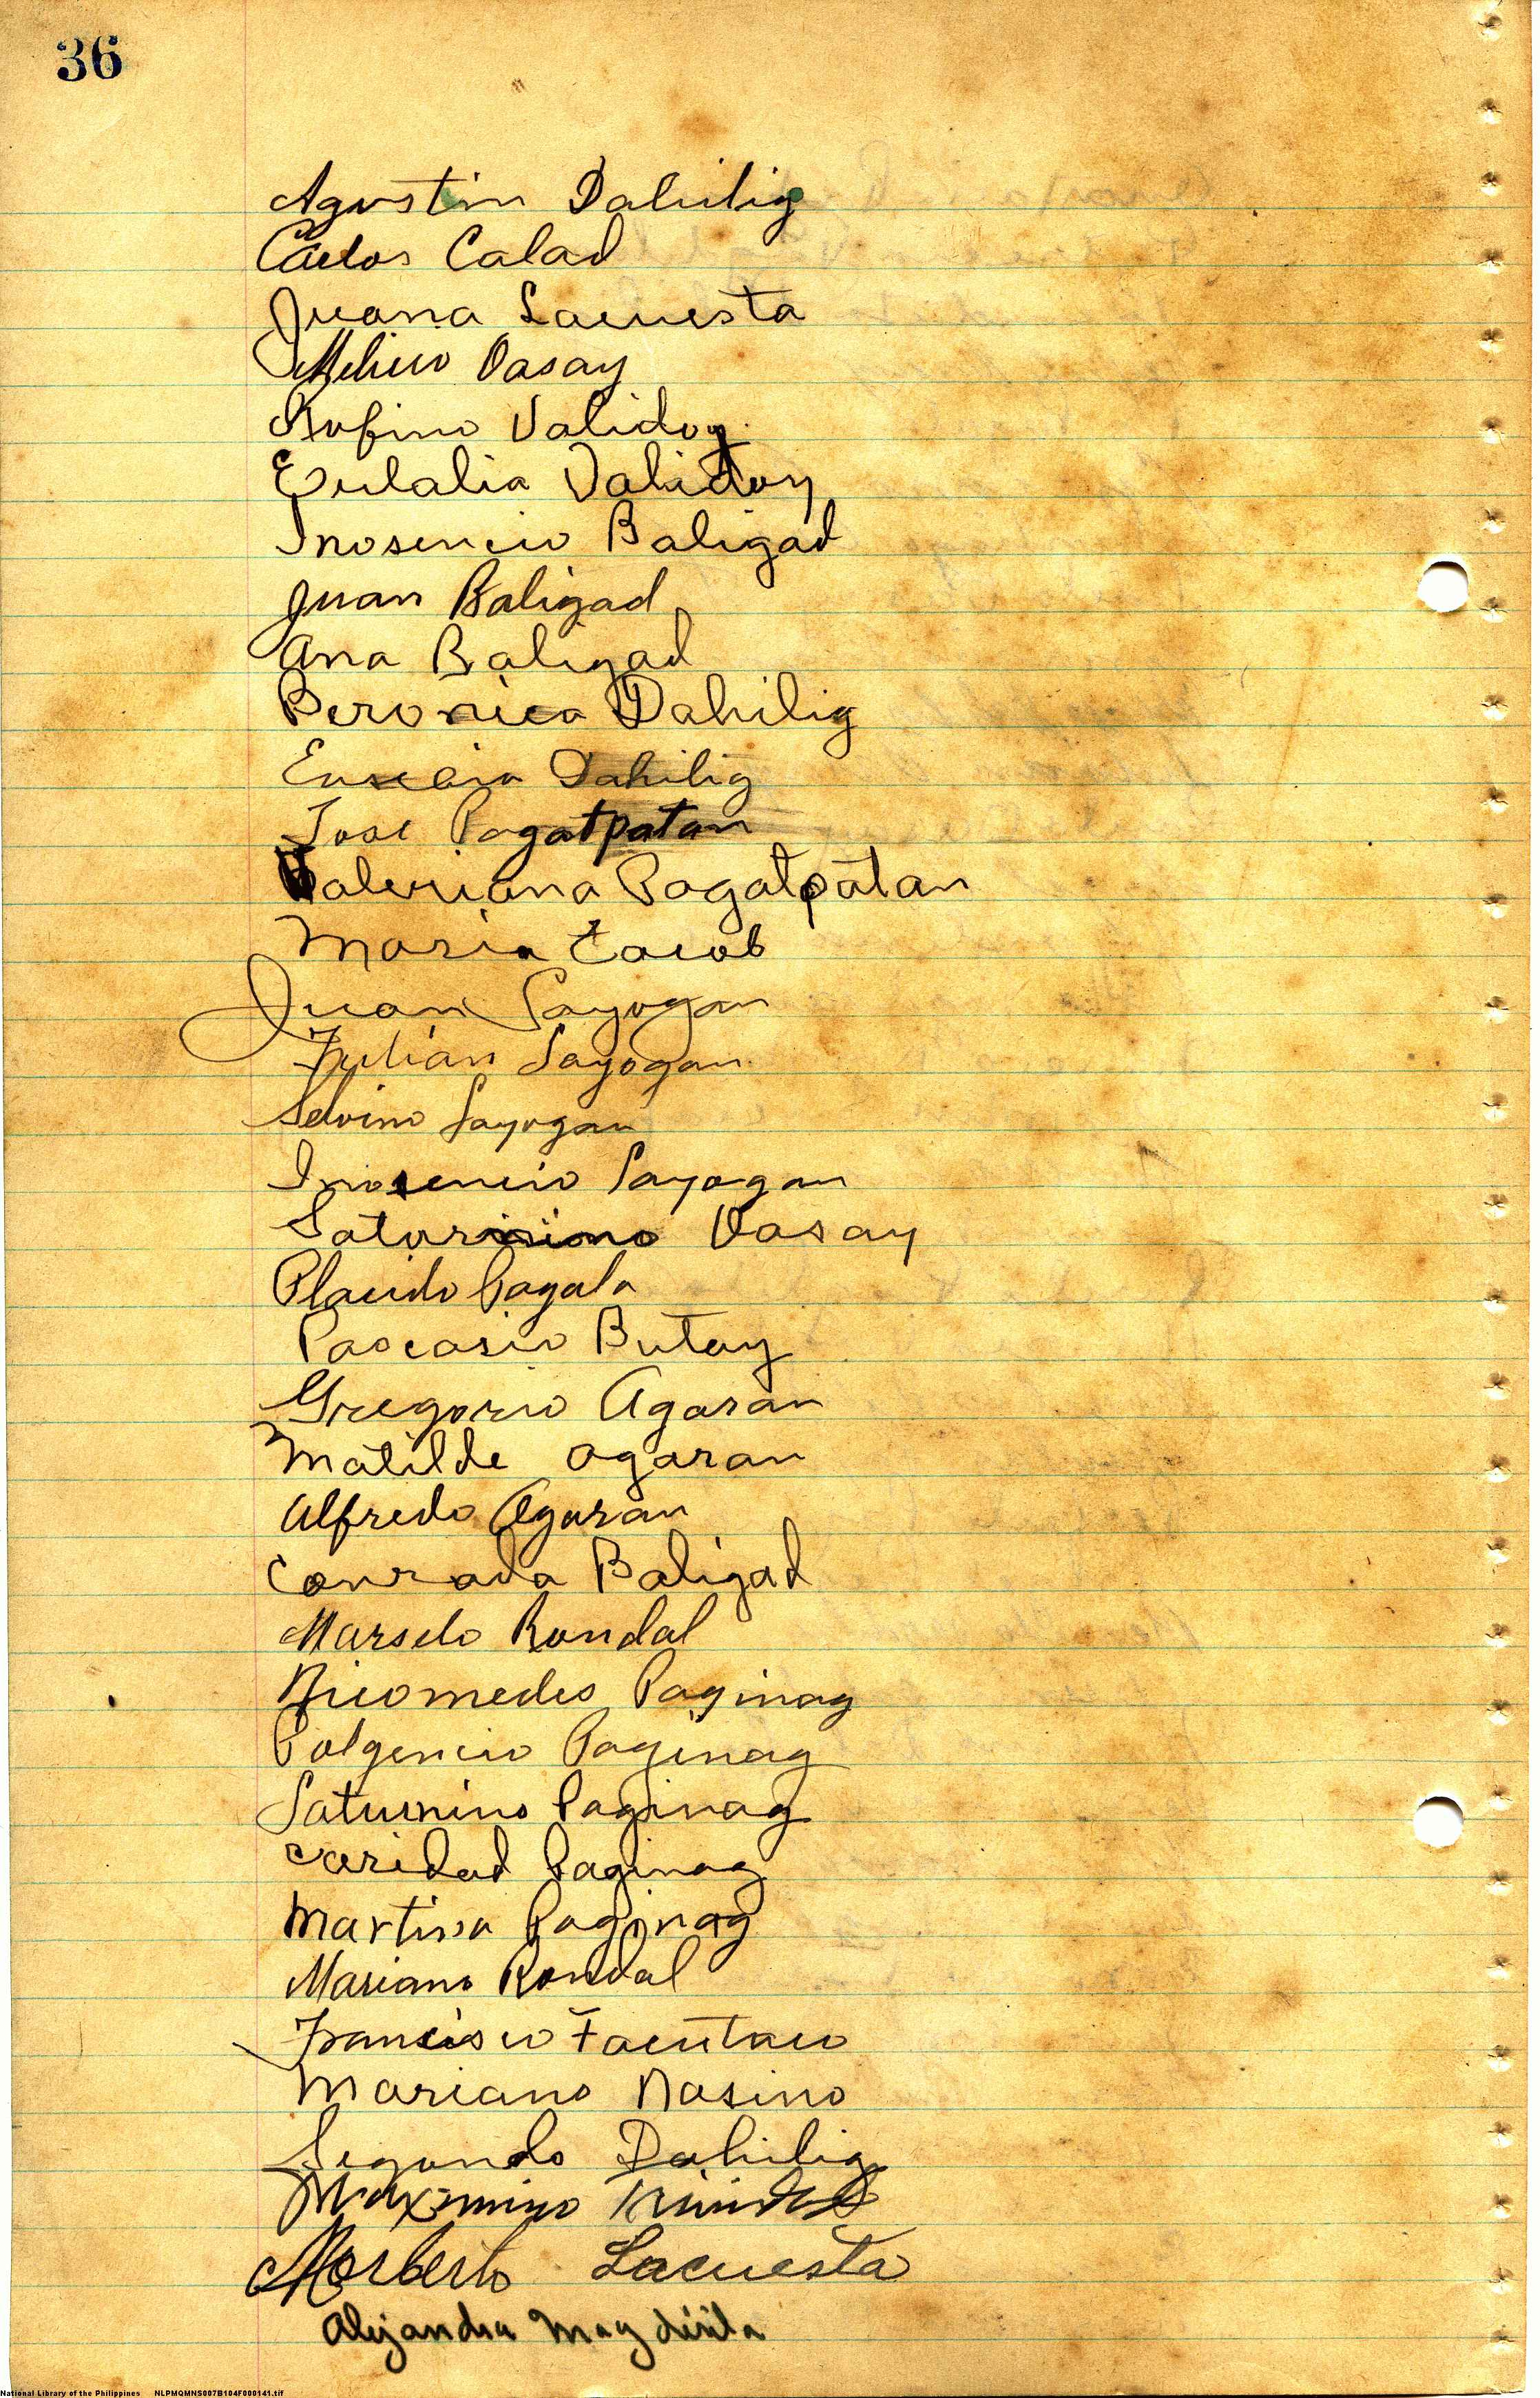 36
Agustin Dahilig
Carlos Calad
Juana Lacuesta
Melicio Oasay
Rufino Validoy
Eulalia Validoy
Inosencio Baligad
Juan Baligad
Ana Baligad
Beronica Dahilig
Eusebia Dahilig
Jose Pagatpatan
Valeriana Pagatpatan
Maria Jacob
Juan Sayogan
Julian Sayogan
Selvino Sayogan
Inosencio Sayogan
Saturnino Oasay
Placido Pagala
Pascasio Butay
Gregorio Agaran
Matilde Agaran
Alfredo Agaran
Conrada Baligad
Marselo Rondal
Nicomedes Paginag
Polgencio Paginag
Saturnino Paginag
Caridad Paginag
Martina Paginag
Mariano Rondal
Francisco
Mariano Nasino
Segundo Dahilig
Maximino Trinidad
Norberto Lacuesta
Alejandra Magdirila
National Library of the Philippines NLPMQMNS007B104F000141.tif